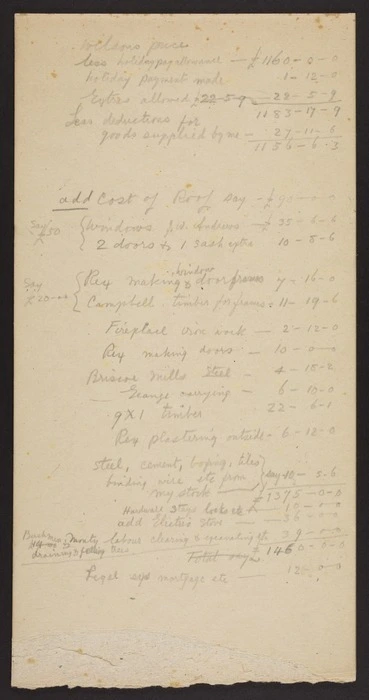 Wilsons price
less holiday pay allowance — £1160-0-0
holiday payment made 1-12-0
Extras allowed 22-5-9 — 22-5-9
1183-17-9
Less deductions for
goods supplied by me — 27-11-6
1156-6-3
add Cost of Roof say - £90-0-0
Say £50 { Windows — £35-6-6
2 doors & 1 sash extra 10-8-6
Say { Rex making window & door frames 4-16-0
Campbell timber for frames = 11-19-6
Fireplace iron work — 2-12-0
Rex making doors - 10-0-0
Briscoe Mills Steel - 4-18-2
— carrying — 6-10-0
9 X 1 timber 22-6-1
Rex plastering outside - 6-12-0
Steel, cement, tiles
binding wire etc from } say 10-5-6
my stock
£1375-0-0
Hardware locks etc 10-0-0
add Electric Stove — 36-0-0
& Monty labour clearing & excavating etc 39-0-0
draining & trees
Total say £1460-0-0
Legal mortgage etc — 12-0-0